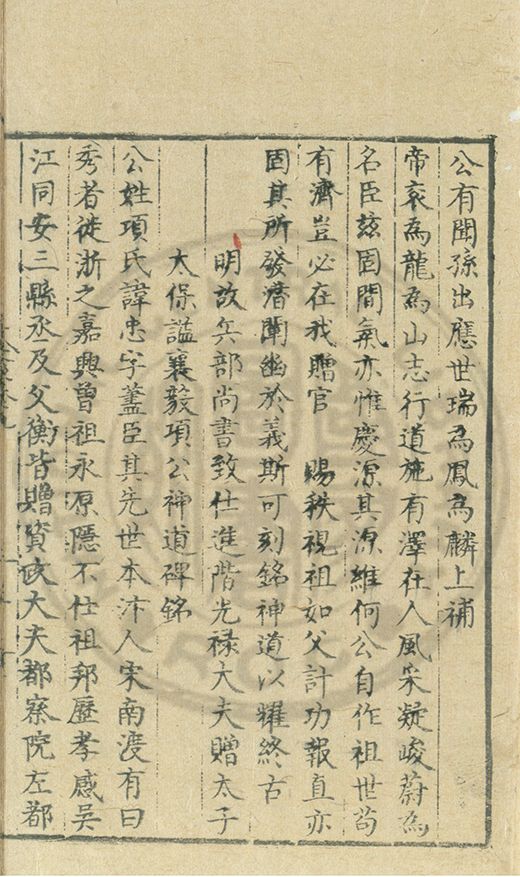 公有聞孫出應世瑞為鳳為麟上補
帝衮為龍為山志行道施有澤在人風采凝峻蔚為
名臣玆固間氣亦惟慶源其源維何公自作祖世茍
有濟豈必在我贈官　賜秩視祖如父計功報直亦
固其所發潛闡幽於義斯可刻銘神道以耀終古
明故兵部尚書致仕進階光祿大夫贈太子
太保謚襄毅項公神道碑銘
公姓項氏諱忠字藎臣其先世本汴人宋南渡有曰
秀者徙浙之嘉興曾祖永原隱不仕祖邦歷孝感吳
江同安三縣丞及父衡皆贈資政大夫都察院左都